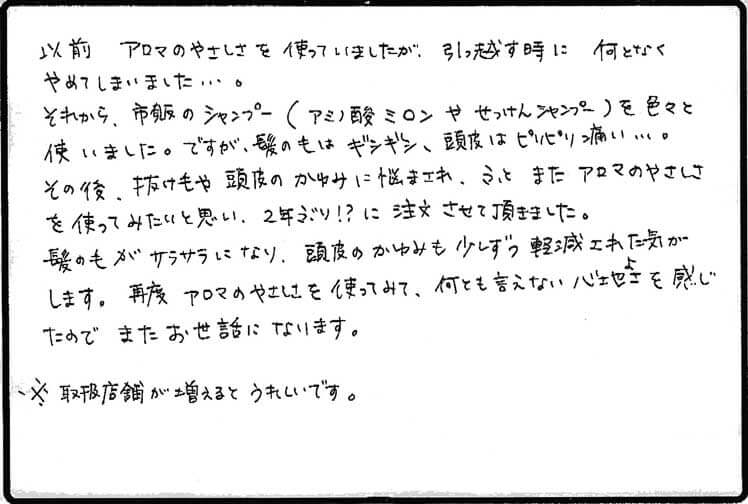 以前 アロマのやさしさを使っていましたが、引っ越す時に 何となく
やめてしまいました…。
それから、市販のシャンプー(アミノ酸ミロンやせっけんシャンプー)を色々と
使いました。ですが、髪のもは ギシギシ、頭皮はピリピリ痛い…。
その後、抜け毛や頭皮のかゆみに悩まされ、ふと また アロマのやさしさ
を使ってみたいと思い、2年ぶり!?に 注文させて頂きました。
髪のもが サラサラになり、頭皮のかゆみも少しずつ軽減された気が
します。再度 アロマのやさしさを使ってみて、何とも言えない心地よさを感じ
たので またお世話になります。
※ 取扱店舗が増えると うれしいです。